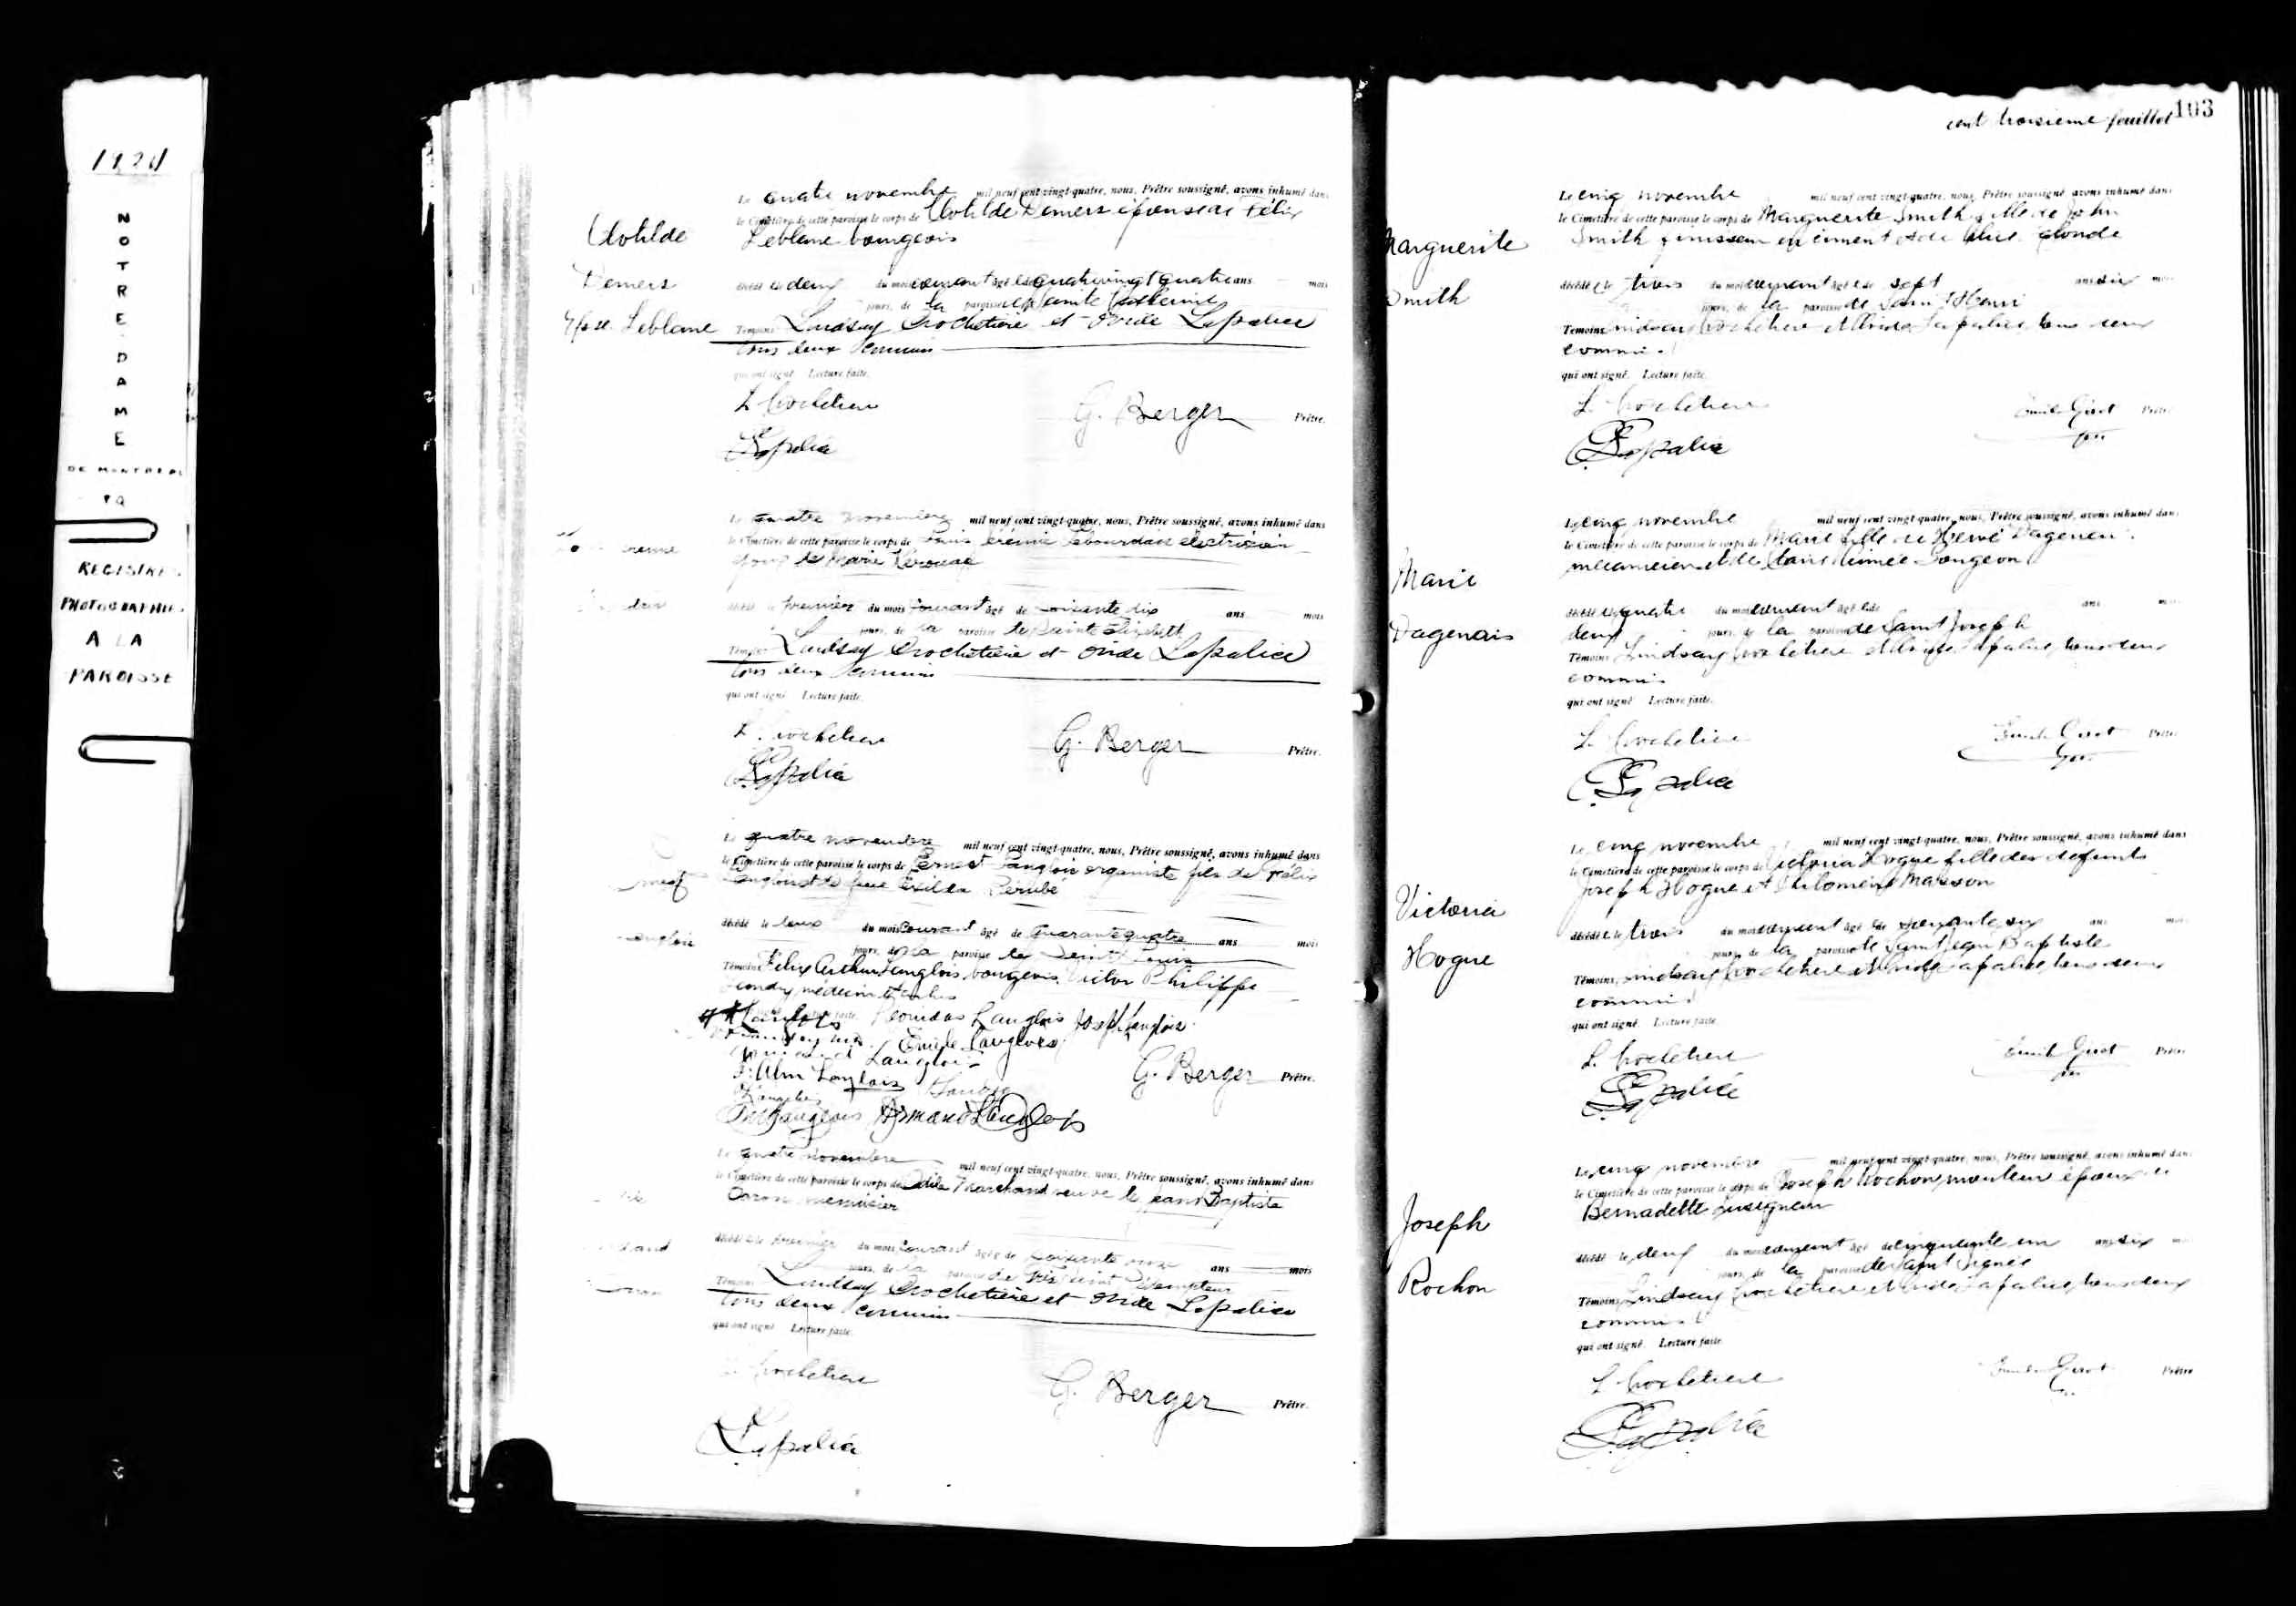 1924
NOTRE DAME
DE MONTREAL
P Q
REGISTRE
PHOTOGRAPHIE
A LA
PAROISSE
Le quatre novembre mil neuf cent vingt-quatre, nous, Prêtre soussigné, avons inhumé dans
le Cimetière de cette paroisse le corps de Clotilde Demers épouse de Félix
Leblanc bourgeois
Clotilde
Demers
Epse. Leblanc
décédée le deux du mois courant âgée de quatrevingt quatre ans mois
jours, de la paroisse de Sainte Catherine
Témoins Lindsay Crochetière et Ovide Lapalice
tous deux commis
qui ont signé. Lecture faite.
L. Crochetiere
G. Berger Prêtre.
Lapalice
Le quatre novembre mil neuf cent vingt-quatre, nous, Prêtre soussigné, avons inhumé dans
le Cimetière de cette paroisse le corps de Louis Jérémie électricien
époux de Marie
décédé le premier du mois courant âgé de soixante dix ans mois
jours, de la paroisse de Sainte Elizabeth
Témoins Lindsay Crochetière et Ovide Lapalice
tous deux commis
qui ont signé. Lecture faite.
L. Crochetiere
G. Berger Prêtre.
Lapalice
Le quatre novembre mil neuf cent vingt-quatre, nous, Prêtre soussigné, avons inhumé dans
le Cimetière de cette paroisse le corps de Ernest Langlois organiste fils de Félix
Langlois et de feue Exilda Bérubé
décédé le deux du mois courant âgé de quarante quatre ans mois
jours, de la paroisse de Saint Louis
Témoins Félix Arthur Langlois, bourgeois, Victor Philippe
médecin et autres
Langlois Léonidas Langlois Joseph Langlois
Emile Langlois
Langlois
G. Berger Prêtre.
Langlois
Armand Langlois
Le quatre novembre mil neuf cent vingt-quatre, nous, Prêtre soussigné, avons inhumé dans
le Cimetière de cette paroisse le corps de Odile Marchand veuve de Jean Baptiste
Caron menuisier
décédée le premier du mois courant âgée de soixante onze ans mois
jours, de la paroisse du Très Saint Rédempteur
Témoins Lindsay Crochetière et Ovide Lapalice
tous deux commis
qui ont signé. Lecture faite.
L. Crochetiere
G. Berger Prêtre.
Lapalice
cent troisieme feuillet 103
Le cinq novembre mil neuf cent vingt-quatre, nous, Prêtre soussigné, avons inhumé dans
le Cimetière de cette paroisse le corps de Marguerite Smith fille de John
Smith finisseur en ciment et de Alice
Marguerite
Smith
décédée le trois du mois courant âgée de sept ans six mois
jours, de la paroisse de Saint Henri
Témoins Lindsay Crochetiere et Ovide Lapalice, tous deux
commis
qui ont signé. Lecture faite.
L. Crochetiere
Emile Girot Prêtre
Lapalice
Le cinq novembre mil neuf cent vingt-quatre, nous, Prêtre soussigné, avons inhumé dans
le Cimetière de cette paroisse le corps de Marie fille de Hervé Dagenais
mécanicien et de Claire Aimée Dongeon
Marie
Dagenais
décédée le quatre du mois courant âgée de ans mois
deux jours, de la paroisse de Saint Joseph
Témoins Lindsay Crochetiere et Ovide Lapalice, tous deux
commis
qui ont signé. Lecture faite.
L. Crochetiere
Emile Girot Prêtre
Lapalice
Le cinq novembre mil neuf cent vingt-quatre, nous, Prêtre soussigné, avons inhumé dans
le Cimetière de cette paroisse le corps de Victoria Hogue fille des defunts
Joseph Hogue et Philomène Masson
Victoria
Hogue
décédée le trois du mois courant âgée de ans mois
jours, de la paroisse de Saint Jean Baptiste
Témoins Lindsay Crochetiere et Ovide Lapalice, tous deux
commis
qui ont signé. Lecture faite.
L. Crochetiere
Emile Girot Prêtre
Lapalice
Le cinq novembre mil neuf cent vingt-quatre, nous, Prêtre soussigné, avons inhumé dans
le Cimetière de cette paroisse le corps de Joseph Rochon, mouleur époux de
Bernadette Lusignan
Joseph
Rochon
décédé le deux du mois courant âgé de cinquante un ans six mois
jours, de la paroisse de Saint
Témoins Lindsay Crochetiere et Ovide Lapalice, tous deux
commis
qui ont signé. Lecture faite.
L. Crochetiere
Emile Girot Prêtre
Lapalice